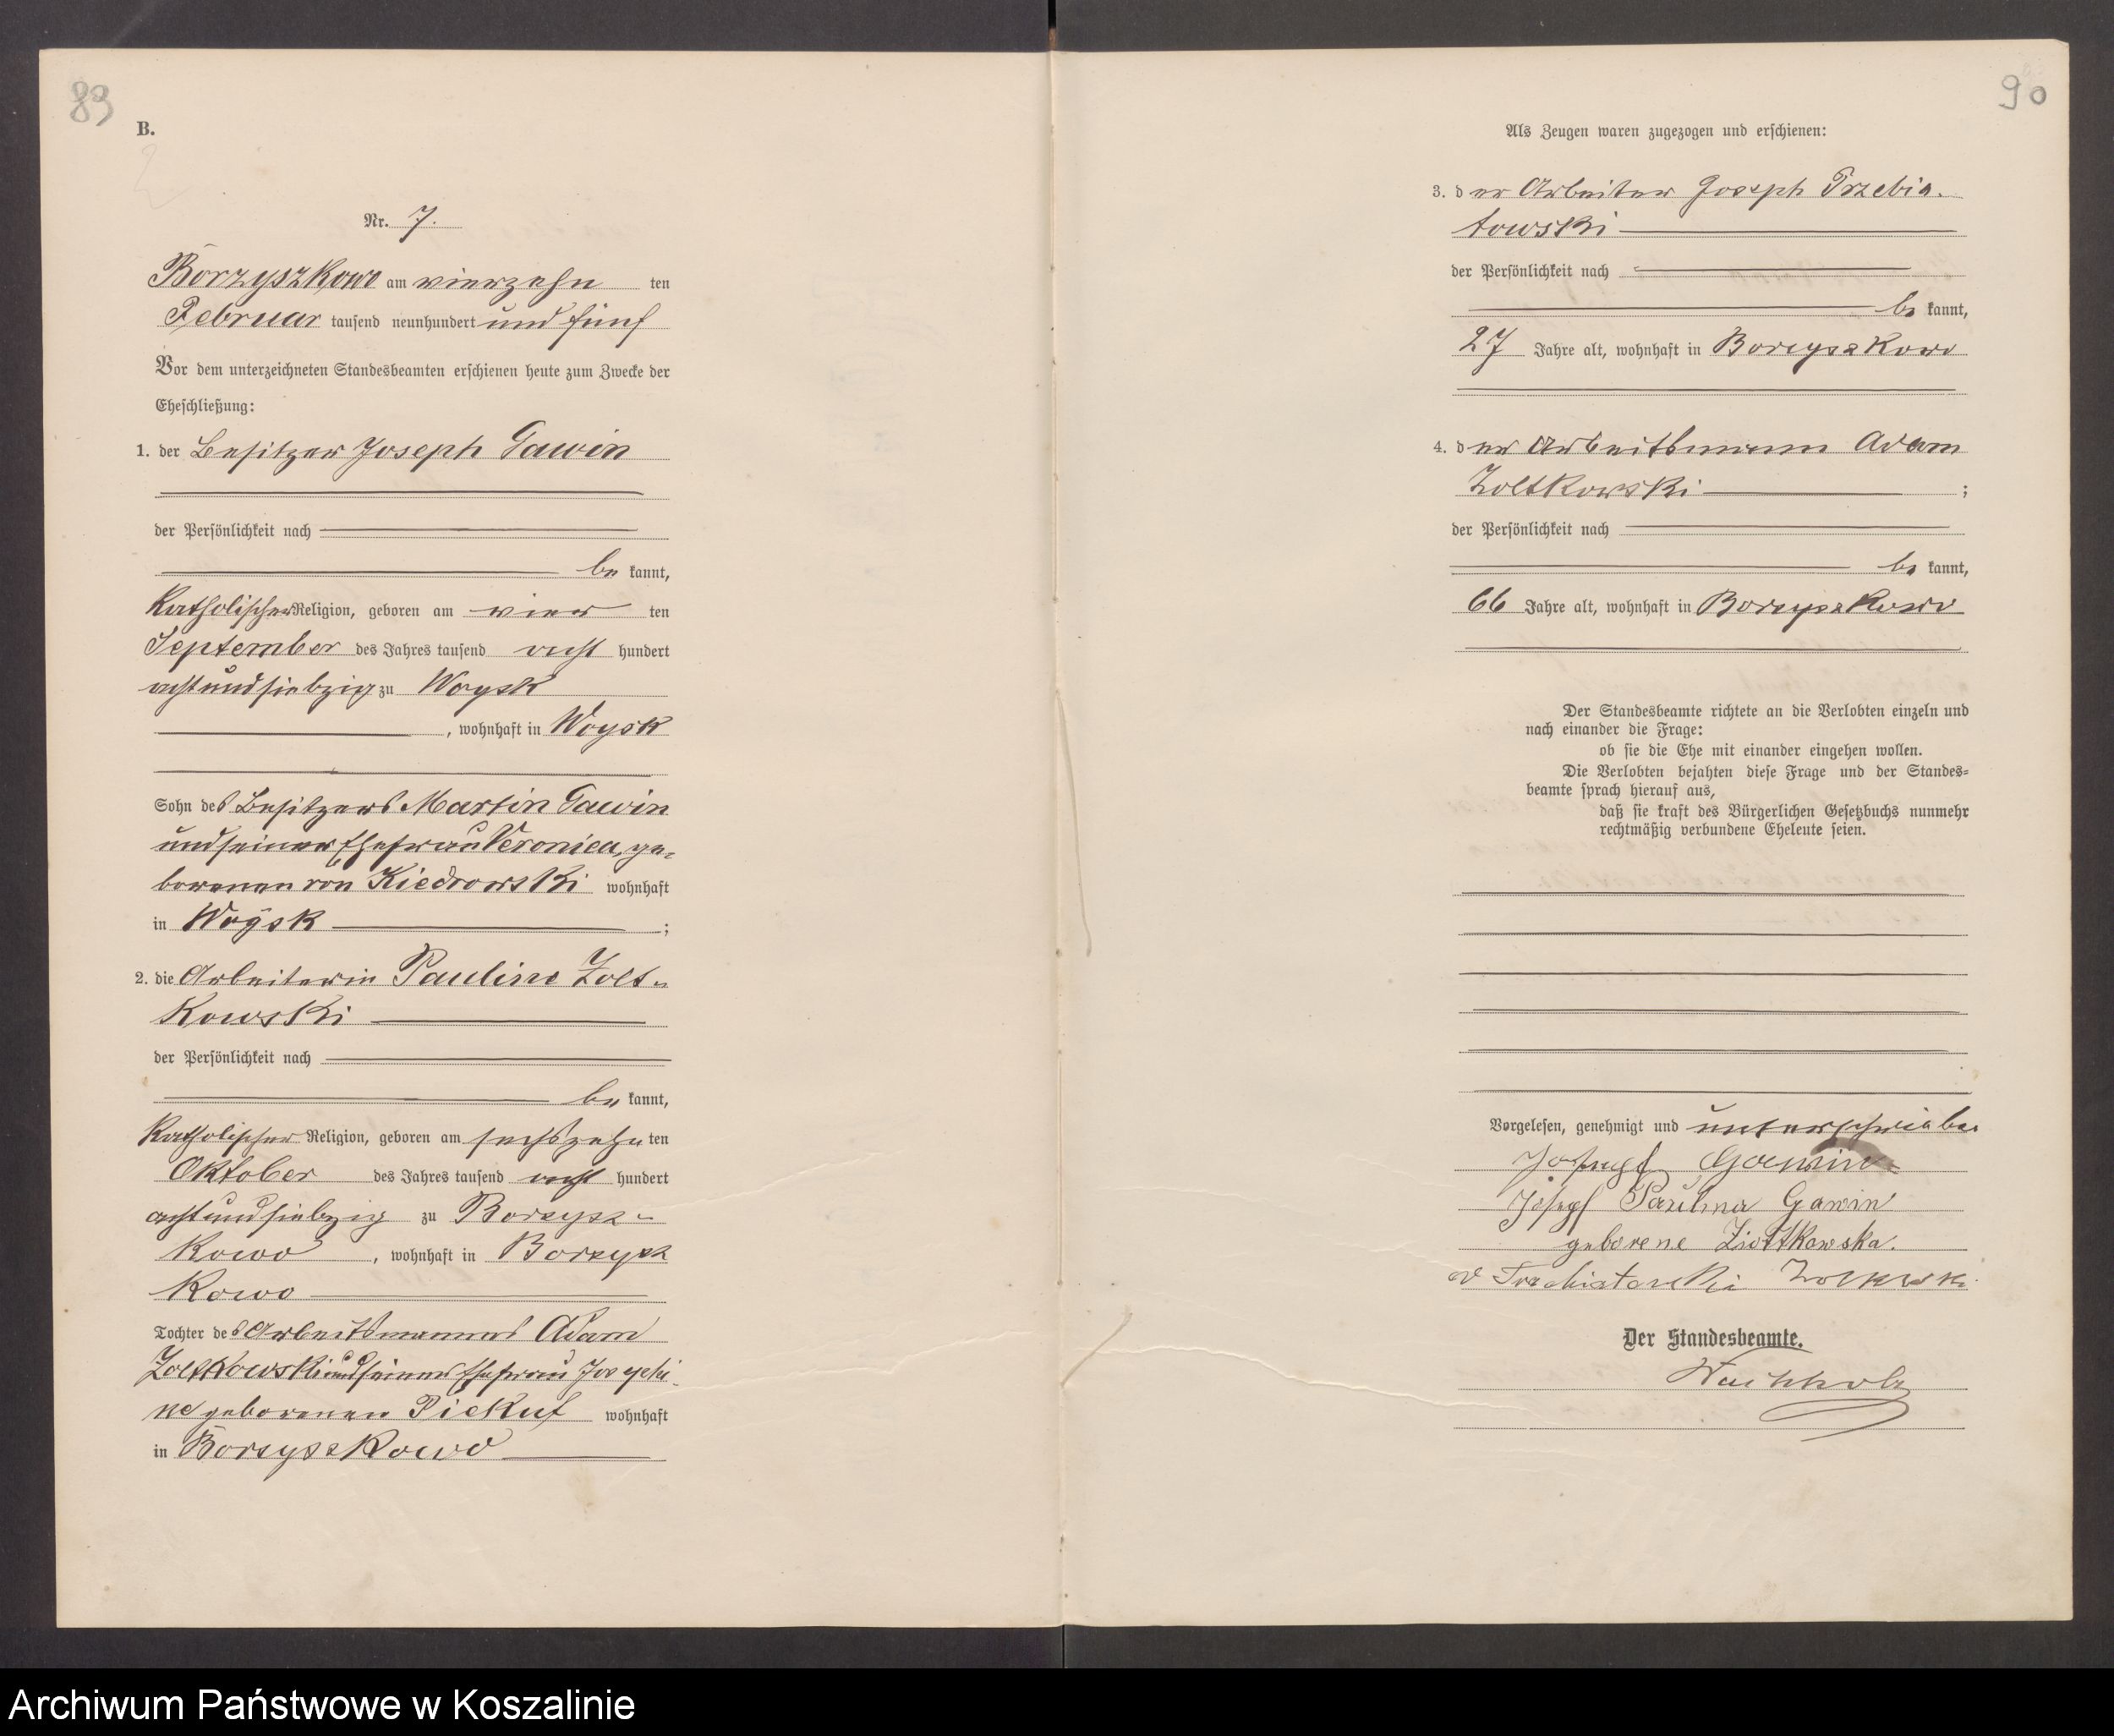 83
B.
Nr. 7.
Borzyszkowo am vierzehn ten
Februar tausend neunhundert und fünf
Vor dem unterzeichneten Standesbeamten erschienen heute zum Zwecke der
Eheschließung:
1. der Besitzer Joseph Gawin
der Persönlichkeit nach
be kannt,
katholischer Religion, geboren am vier ten
September des Jahres tausend acht hundert
achtundsiebzig zu Woysk
, wohnhaft in Woysk
Sohn des Besitzers Martin Gawin
und seiner Ehefrau Veronica, ge-
borenen von Kiedrowski wohnhaft
in Woÿsk ;
2. die Arbeiterin Pauline Zolt-
kowski
der Persönlichkeit nach
be kannt,
katholischer Religion, geboren am sechszehn ten
Oktober des Jahres tausend acht hundert
achtundsiebzig zu Borzysz-
kowo , wohnhaft in Borzysz
kowo
Tochter des Arbeitsmannes Adam
Zoltkowski und seiner Ehefrau Josephi-
ne geborenen Piekut wohnhaft
in Borzyszkowo
90
Als Zeugen waren zugezogen und erschienen:
3. der Arbeiter Joseph Przebia-
towski
der Persönlichkeit nach
be kannt,
27 Jahre alt, wohnhaft in Borzyszkowo
4. der Arbeitsmann Adam
Zoltkowski ;
der Persönlichkeit nach
be kannt,
66 Jahre alt, wohnhaft in Borzyszkowo
Der Standesbeamte richtete an die Verlobten einzeln und
nach einander die Frage:
ob sie die Ehe mit einander eingehen wollen.
Die Verlobten bejahten diese Frage und der Standes-
beamte sprach hierauf aus,
daß sie kraft des Bürgerlichen Gesetzbuchs nunmehr
rechtmäßig verbundene Eheleute seien.
Vorgelesen, genehmigt und unterschrieben
Joseph Gawin
Josepf Paulina Gawin
geborene Ziottkowska.
Der Standesbeamte.
Wachholz
Archiwum Państwowe w Koszalinie